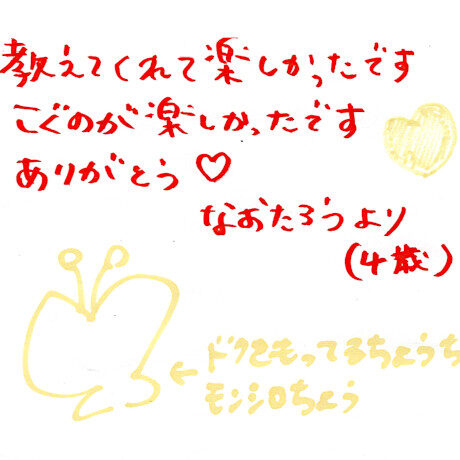 教えてくれて楽しかったです
こぐのが楽しかったです
ありがとう♡
なおたろうより
(4歳)
←ドクをもってるちょうち
モンシロちょう